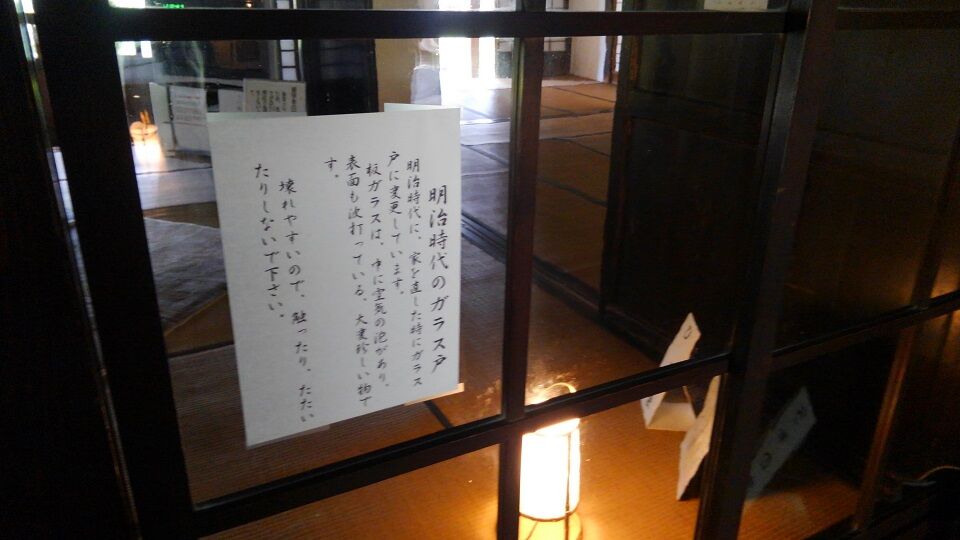 明治時代のガラス戸
明治時代に、家を直した時にガラス
戸に変更しています。
板ガラスは、中に空気の泡があり、
表面も波打っている、大変珍しい物で
す。
壊れやすいので、触ったり、たたい
たりしないで下さい。